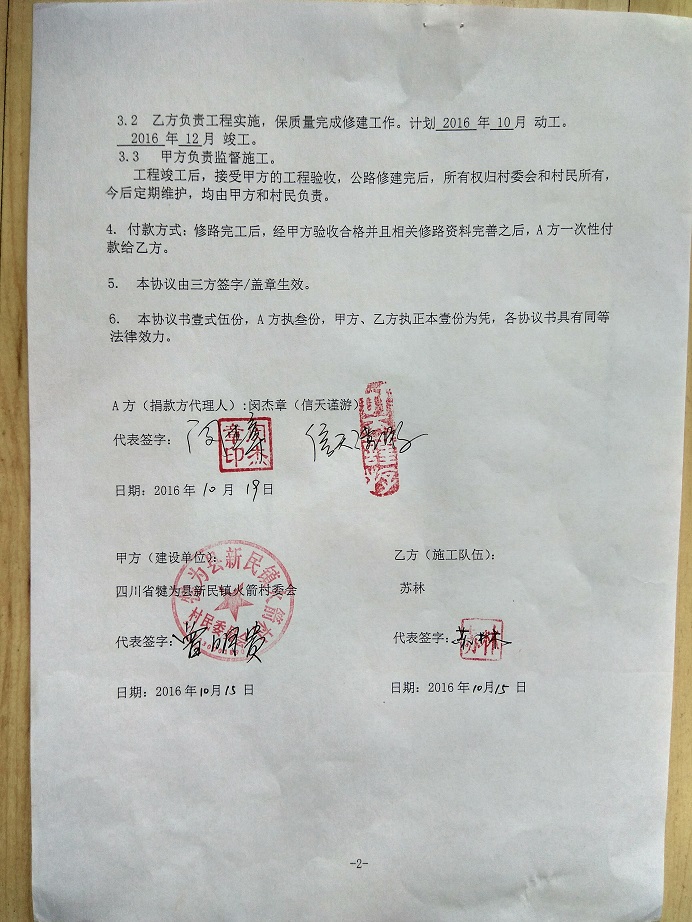 3.2 乙方负责工程实施，保质量完成修建工作。计划 2016 年 10 月 动工。
2016 年 12 月 竣工。
3.3 甲方负责监督施工。
工程竣工后，接受甲方的工程验收，公路修建完后，所有权归村委会和村民所有，
今后定期维护，均由甲方和村民负责。
4. 付款方式：修路完工后，经甲方验收合格并且相关修路资料完善之后，A 方一次性付
款给乙方。
5. 本协议由三方签字/盖章生效。
6. 本协议书壹式伍份，A 方执叁份，甲方、乙方执正本壹份为凭，各协议书具有同等
法律效力。
A 方（捐款方代理人）:闵杰章（信天谨游）
代表签字： 闵杰章 信天谨游
闵杰章印
日期：2016 年 10 月 19 日
甲方（建设单位）： 乙方（施工队伍）：
犍为县新民镇火箭村
村民委员会
四川省犍为县新民镇火箭村委会 苏林
代表签字：曾明贵 代表签字：苏林
苏林
日期：2016 年 10 月 15 日 日期：2016 年 10 月 15 日
-2-